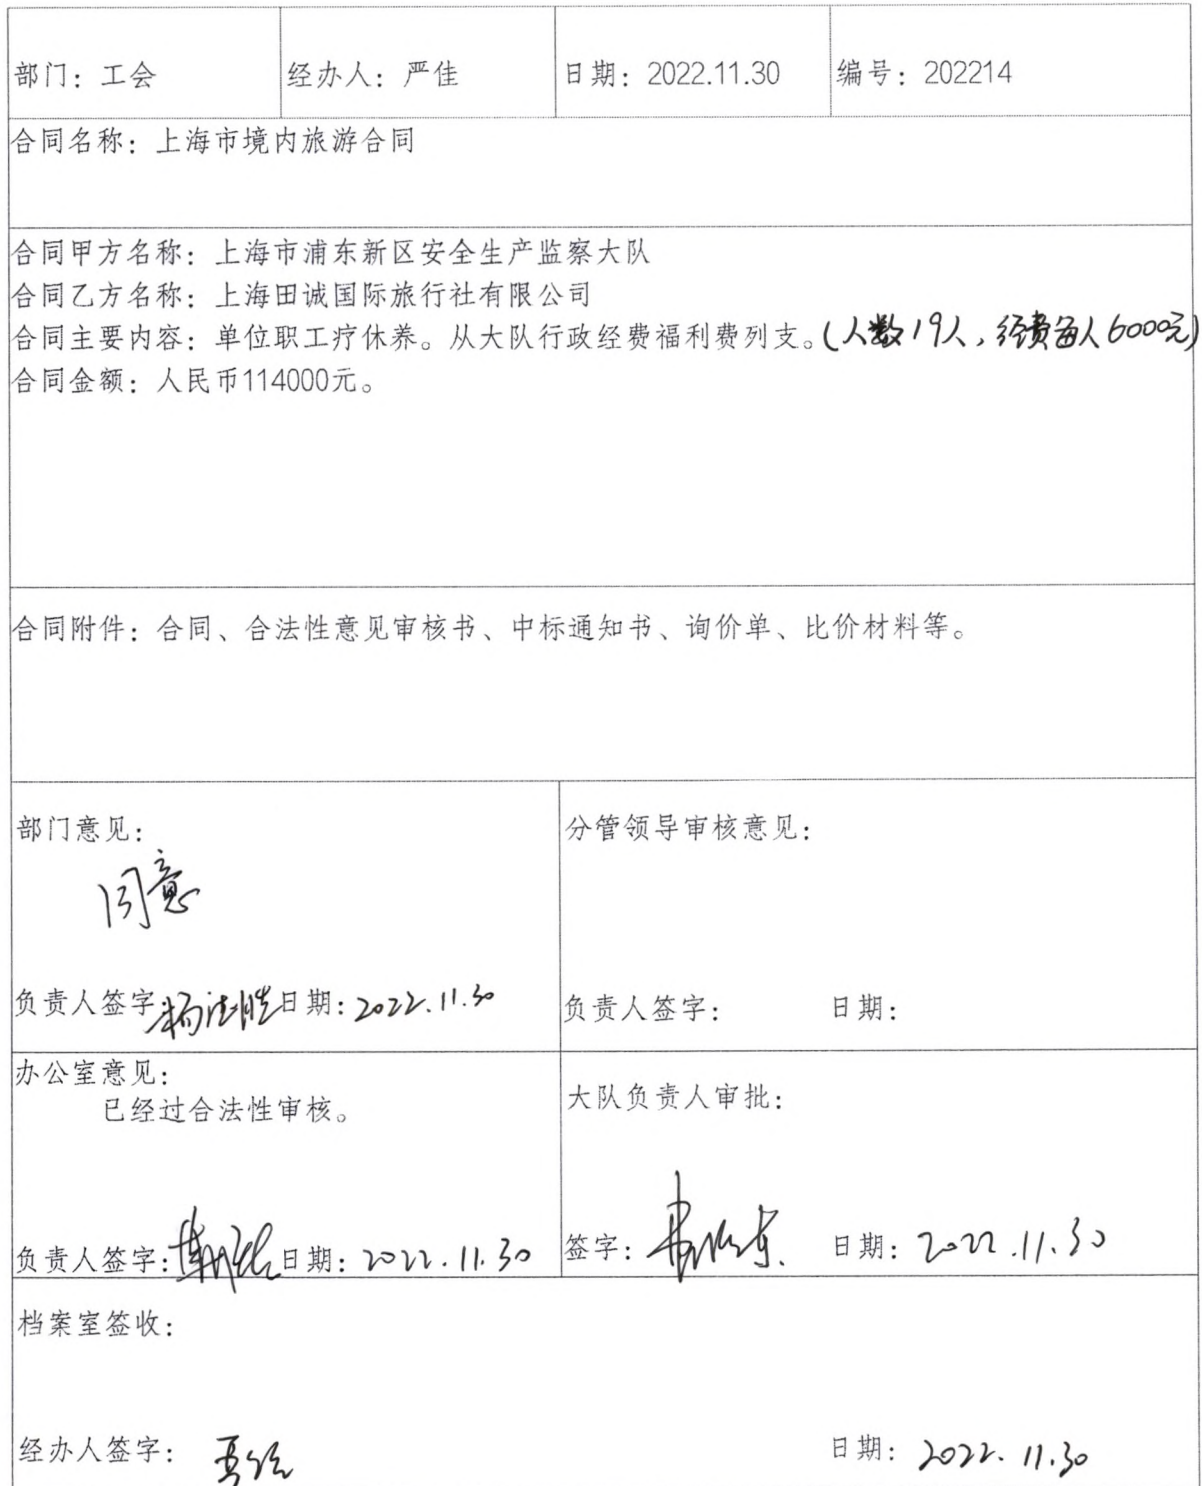 部门：工会 经办人：严佳 日期：2022.11.30 编号：202214
合同名称：上海市境内旅游合同
合同甲方名称：上海市浦东新区安全生产监察大队
合同乙方名称：上海田诚国际旅行社有限公司
合同主要内容：单位职工疗休养。从大队行政经费福利费列支。(人数19人，经费每人6000元)
合同金额：人民币114000元。
合同附件：合同、合法性意见审核书、中标通知书、询价单、比价材料等。
部门意见： 分管领导审核意见：
同意
负责人签字 日期：2022.11.30 负责人签字： 日期：
办公室意见：
已经过合法性审核。
大队负责人审批：
负责人签字： 日期：2022.11.30 签字： 日期：2022.11.30
档案室签收：
经办人签字： 日期：2022.11.30